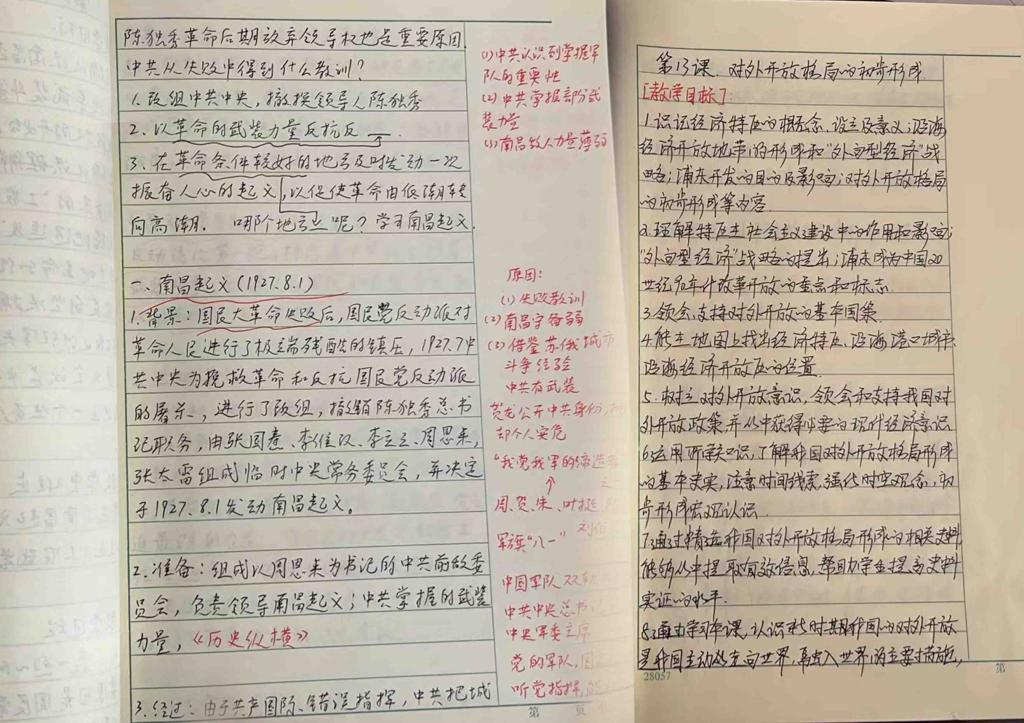 陈独秀革命后期放弃领导权也是重要原因.
中共从失败中得到什么教训?
1.改组中共中央,撤换领导人陈独秀
2.以革命的武装力量反抗反
3.在革命条件较好的地方及时发动一次
振奋人心的起义,以促使革命由低潮转
向高潮. 哪个地方呢?学习南昌起义.
一.南昌起义(1927.8.1)
1.背景:国民大革命失败后,国民党反动派对
革命人民进行了极端残酷的镇压,1927.7中
共中央为挽救革命和反抗国民党反动派
的屠杀,进行了改组,撤销陈独秀总书
记职务,由张国焘、李维汉、李立三、周恩来,
张太雷组成临时中央常务委员会,并决定
于1927.8.1发动南昌起义。
2.准备:组成以周恩来为书记的中共前敌委
员会,负责领导南昌起义;中共掌握的武装
力量,《历史纵横》
3.经过:由于共产国际、错误指挥,中共把城
(1)中共认识到掌握军
队的重要性
(2)中共掌握部分武
装力量
(3)南昌敌人力量薄弱
原因:
(1)失败教训
(2)南昌守备弱
(3)借鉴苏俄城市
斗争经验
中共有武装
贺龙公开中共身份,
却个人安危
"我党我军的缔造
周、贺、朱、叶挺
军旗"八一"
中国军队双
中共中央总书
中央军委主席
党的军队,
听党指挥,
第 页
第13课.对外开放格局的初步形成
[教学目标]:
1.识记经济特区的概念、设立及意义;沿海
经济开放地带的形成和"外向型经济"战
略;浦东开发的目的及影响;对外开放格局
的初步形成等内容.
2.理解特区在社会主义建设中的作用和影响;
"外向型经济"战略的提出;浦东成为中国20
世纪90年代改革开放的重点和标志.
3.领会支持对外开放的基本国策.
4.能在地图上找出经济特区、沿海港口城市、
沿海经济开放区的位置.
5.树立对外开放意识,领会和支持我国对
外开放政策,并从中获得必要的现代经济意识.
6.运用所学知识,了解我国对外开放格局形成
的基本史实,注意时间线索,强化时空观念,初
步形成宏观认识.
7.通过精选我国对外开放格局形成的相关史料
能够从中提取有效信息,帮助学生提高史料
实证的水平.
8.通过学习本课,认识新时期我国的对外开放
是我国主动走向世界,融入世界的主要措施,
28057
第